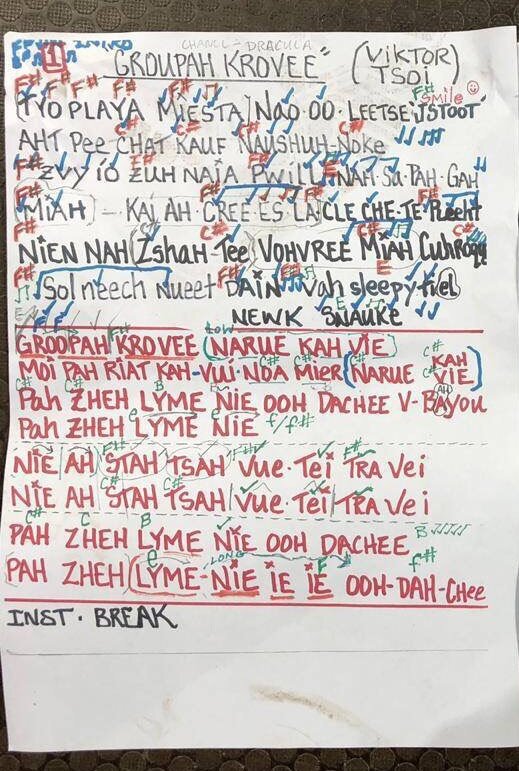 CHANEL - DRACULA
1 "GROUPAH KROVEE" (ViKTOR TSOi)
(TYO PLAYA MiESTA) NAO·OO·LEETSE 'JSTOOT'
Smile
AHT Pee CHAT KAUF NAUSHUH-NoKe
ZVY iO ZUH NAJA PWiLL NAH·Sa·PAH·GAH
MiAH - KAJ AH CREE ES LA CLE CHE-TE-
NiEN NAH (ZshaH-Tee) VOHVREE MiAH
Sol neech nueet DAIN vah sleepy-
NEWK SNAUKE
GROOPAH KROVEE (NARUE KAH ViE)
LOW
MOi PAH RiAT KAH-Vui-NDA MiER (NARUE KAH ViE)
Pah ZHEH LYME NiE OOH DACHEE V-BAYou
Pah ZHEH LYME NiE f/f#
NiE AH STAH TSAH VUe·Tei TRA Vei
NiE AH STAH TSAH VUe·Tei TRA Vei
PAH ZHEH LYME NiE OOH DACHEE
LONG
PAH ZHEH (LYME-NiE iE iE OOH-DAH-CHee
INST· BREAK